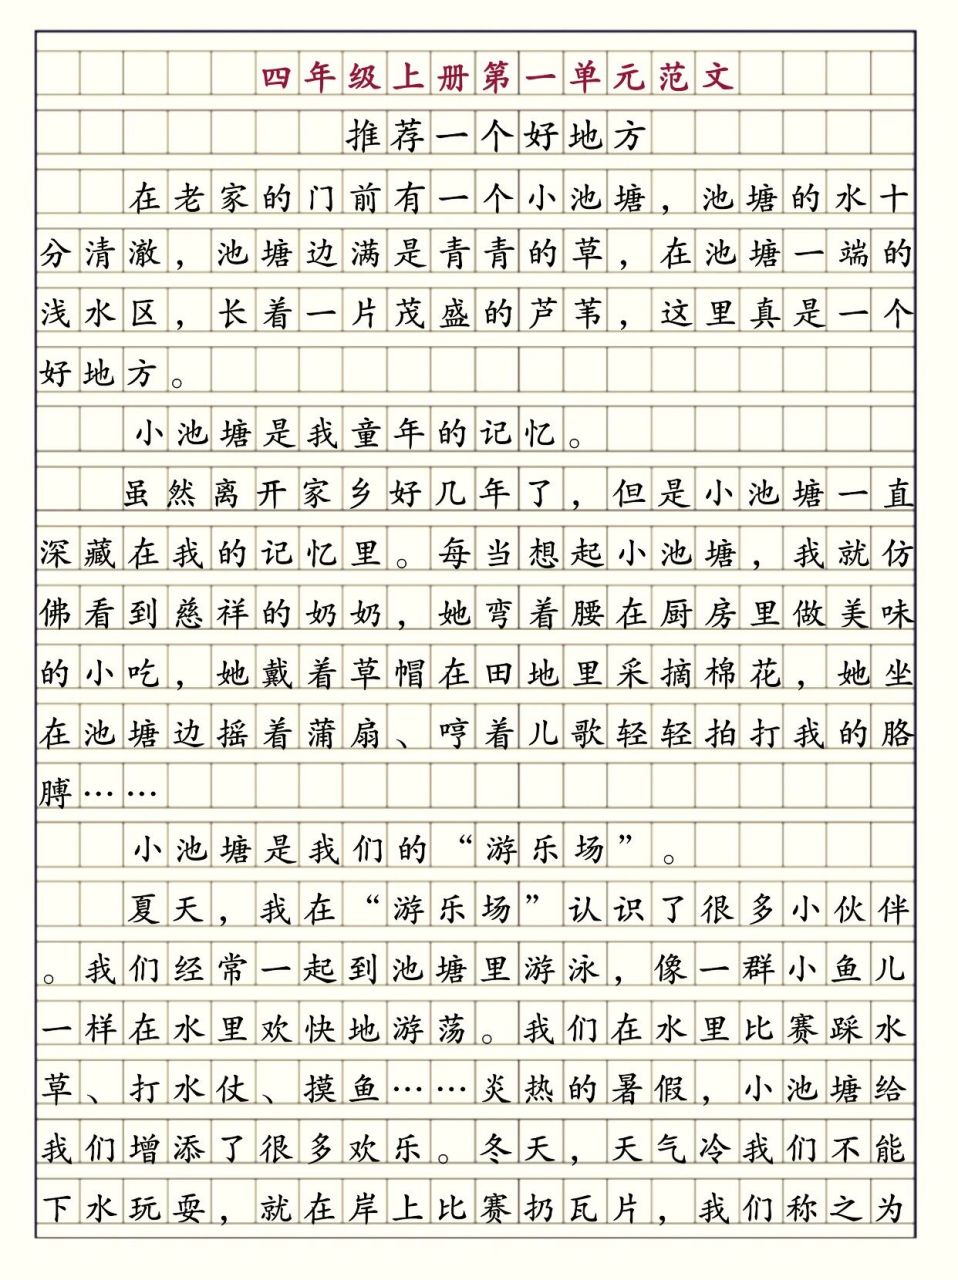 四年级上册第一单元范文
推荐一个好地方
在老家的门前有一个小池塘，池塘的水十
分清澈，池塘边满是青青的草，在池塘一端的
浅水区，长着一片茂盛的芦苇，这里真是一个
好地方。
小池塘是我童年的记忆。
虽然离开家乡好几年了，但是小池塘一直
深藏在我的记忆里。每当想起小池塘，我就仿
佛看到慈祥的奶奶，她弯着腰在厨房里做美味
的小吃，她戴着草帽在田地里采摘棉花，她坐
在池塘边摇着蒲扇、哼着儿歌轻轻拍打我的胳
膊……
小池塘是我们的“游乐场”。
夏天，我在“游乐场”认识了很多小伙伴
。我们经常一起到池塘里游泳，像一群小鱼儿
一样在水里欢快地游荡。我们在水里比赛踩水
草、打水仗、摸鱼……炎热的暑假，小池塘给
我们增添了很多欢乐。冬天，天气冷我们不能
下水玩耍，就在岸上比赛扔瓦片，我们称之为